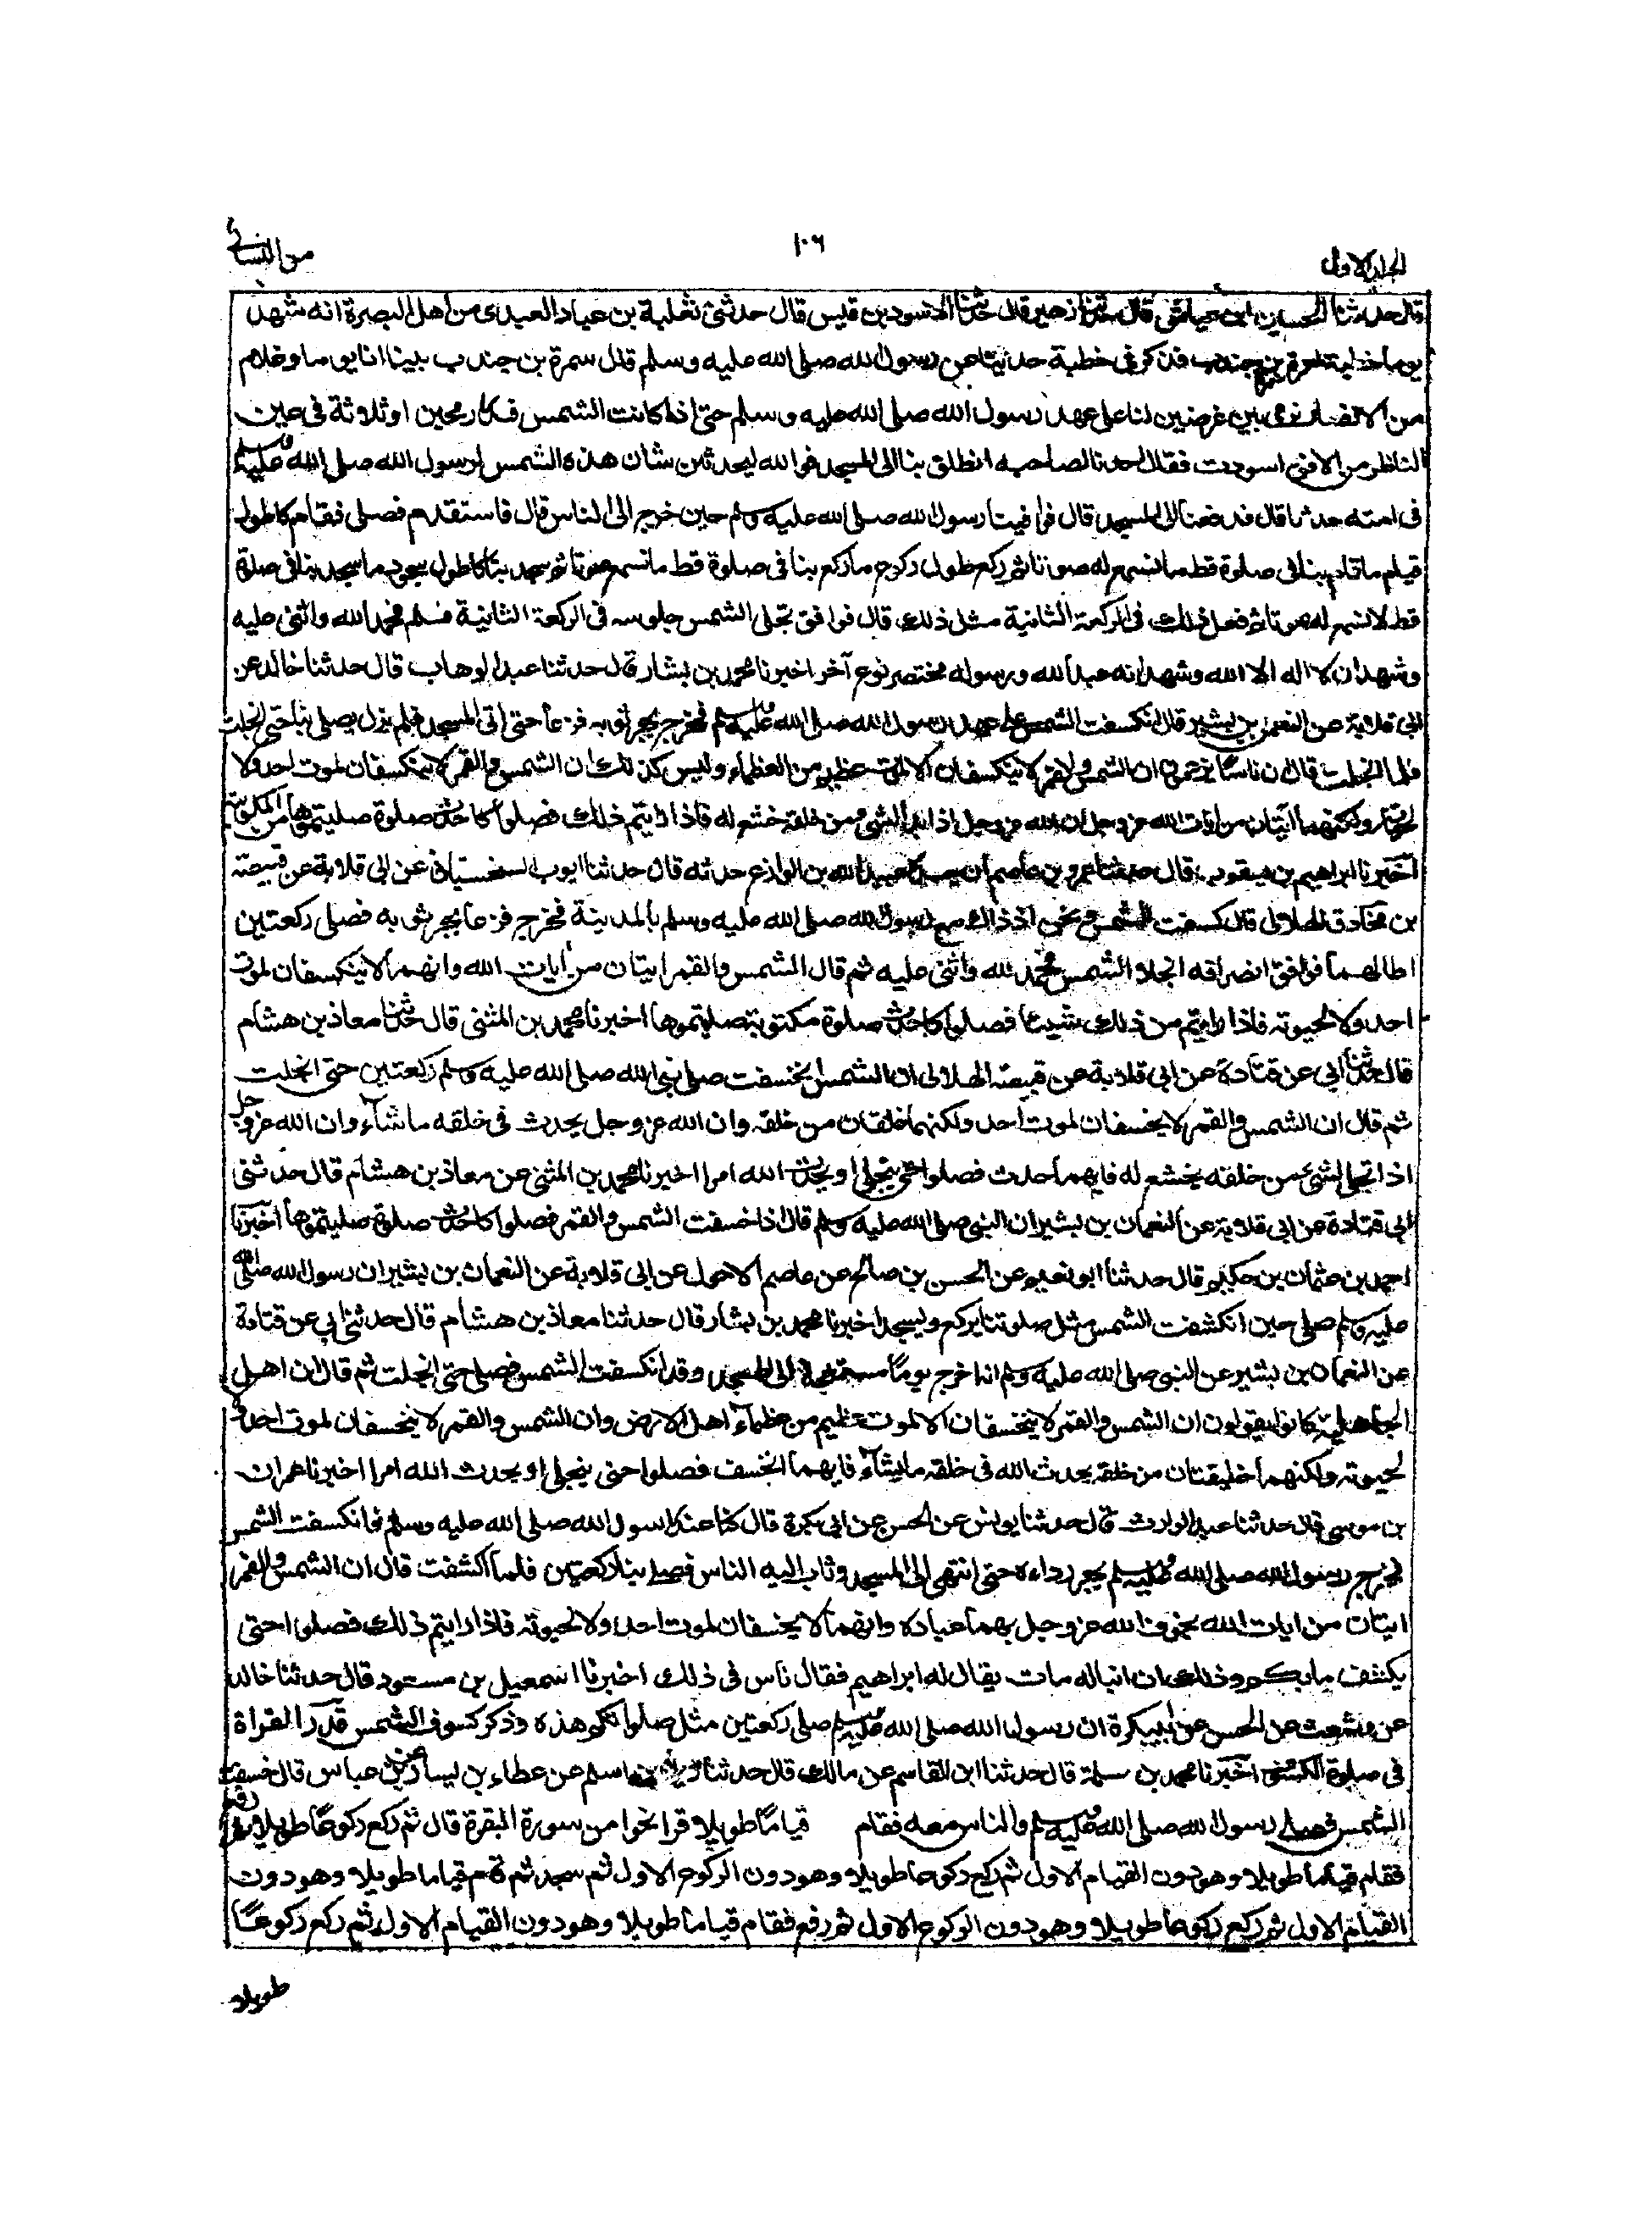 الجلد الاول
١٠٦
من النسائي
قال حدثنا الحسين ابن عياش قال حدثنا زهير قال حدثنا الاسود بن قيس قال حدثنى ثعلبة بن عباد العبدى من اهل البصرة انه شهد
يوما خطبة لسمرة بن جندب فذكر فى خطبة حديثا عن رسول الله صلى الله عليه وسلم قال سمرة بن جندب بينا انا يوما وغلام
من الانصار نرمى بين غرضين لنا على عهد رسول الله صلى الله عليه وسلم حتى اذا كانت الشمس قدر رمحين او ثلاثة فى عين
الناظر من الافق اسودت فقال احدنا لصاحبه انطلق بنا الى المسجد فوالله ليحدثن شان هذه الشمس لرسول الله صلى الله عليه وسلم
فى امته حدثا قال فدفعنا الى المسجد قال فوافينا رسول الله صلى الله عليه وسلم حين خرج الى الناس قال فاستقدم فصلى فقام كاطول
قيام ما قام بنا فى صلوة قط ما نسمع له صوتا ثم ركع طول ركوع ما ركع بنا فى صلوة قط ما نسمع صوتا ثم سجد بنا كاطول سجود ما سجد بنا فى صلوة
قط لا نسمع له صوتا ثم فعل ذلك فى الركعة الثانية مثل ذلك قال فوافق تجلى الشمس جلوسه فى الركعة الثانية فسلم فحمد الله واثنى عليه
وشهد ان لا اله الا الله وشهد انه عبد الله ورسوله مختصر نوع آخر اخبرنا محمد بن بشار قال حدثنا عبد الوهاب قال حدثنا خالد عن
ابى قلابة عن النعمن بن بشير قال انكسفت الشمس على عهد رسول الله صلى الله عليه وسلم فخرج يجر ثوبه فزعا حتى اتى المسجد فلم يزل يصلى بنا حتى انجلت
فلما انجلت قال ان ناسا يزعمون ان الشمس والقمر لا ينكسفان الا لموت عظيم من العظماء وليس كذلك ان الشمس والقمر لا ينكسفان لموت احد ولا
لحيوته ولكنهما آيتان من ايات الله عز وجل ان الله عز وجل اذا بدا لشئ من خلقه خشع له فاذا رايتم ذلك فصلوا كاحدث صلوة صليتموها من المكتوبة
اخبرنا ابراهيم بن يعقوب قال حدثنا عمرو بن عاصم ان عبيد الله بن الوازع حدثه قال حدثنا ايوب السختيانى عن ابى قلابة عن قبيصة
بن مخارق الهلالى قال كسفت الشمس ونحن اذ ذاك مع رسول الله صلى الله عليه وسلم بالمدينة فخرج فزعا يجر ثوبه فصلى ركعتين
اطالهما فوافق انصرافه انجلاء الشمس فحمد الله واثنى عليه ثم قال الشمس والقمر ايتان من ايات الله وانهما لا ينكسفان لموت
احد ولا لحيوته فاذا رايتم من ذلك شيئا فصلوا كاحدث صلوة مكتوبة صليتموها اخبرنا محمد بن المثنى قال حدثنا معاذ بن هشام
قال حدثنا ابى عن قتادة عن ابى قلابة عن قبيصة الهلالى ان الشمس انخسفت صلى نبى الله صلى الله عليه وسلم ركعتين حتى انجلت
ثم قال ان الشمس والقمر لا يخسفان لموت احد ولكنهما خلقان من خلقه وان الله عز وجل يحدث فى خلقه ما شاء وان الله عز وجل
اذا تجلى لشئ من خلقه يخشع له فايهما حدث فصلوا حتى ينجلى او يحدث الله امرا اخبرنا محمد بن المثنى عن معاذ بن هشام قال حدثنى
ابى قتادة عن ابى قلابة عن النعمان بن بشير ان النبى صلى الله عليه وسلم قال اذا خسفت الشمس والقمر فصلوا كاحدث صلوة صليتموها اخبرنا
احمد بن عثمان بن حكيم قال حدثنا ابو نعيم عن الحسن بن صالح عن عاصم الاحول عن ابى قلابة عن النعمان بن بشير ان رسول الله صلى الله
عليه وسلم صلى حين انكشفت الشمس مثل صلوتنا يركع ويسجد اخبرنا محمد بن بشار قال حدثنا معاذ بن هشام قال حدثنى ابى عن قتادة
عن النعمان بن بشير عن النبى صلى الله عليه وسلم انه خرج يوما مستعجلا الى المسجد وقد انكسفت الشمس فصلى حتى انجلت ثم قال ان اهل
الجاهلية كانوا يقولون ان الشمس والقمر لا ينخسفان الا لموت عظيم من عظماء اهل الارض وان الشمس والقمر لا ينخسفان لموت احد ولا
لحيوته ولكنهما خليقتان من خلقه يحدث الله فى خلقه ما يشاء فايهما انخسف فصلوا حتى ينجلى او يحدث الله امرا اخبرنا عمران
بن موسى قال حدثنا عبد الوارث قال حدثنا يونس عن الحسن عن ابى بكرة قال كنا عند رسول الله صلى الله عليه وسلم فانكسفت الشمس
فخرج رسول الله صلى الله عليه وسلم يجر رداءه حتى انتهى الى المسجد وثاب اليه الناس فصلى بنا ركعتين فلما انكشفت قال ان الشمس والقمر
ايتان من ايات الله يخوف الله عز وجل بهما عباده وانهما لا يخسفان لموت احد ولا لحيوته فاذا رايتم ذلك فصلوا حتى
يكشف ما بكم وذلك ان ابنا له مات يقال له ابراهيم فقال ناس فى ذلك اخبرنا اسمعيل بن مسعود قال حدثنا خالد
عن اشعث عن الحسن عن ابى بكرة ان رسول الله صلى الله عليه وسلم صلى ركعتين مثل صلوتكم هذه وذكر كسوف الشمس قدر القراة
فى صلوة الكسوف اخبرنا محمد بن سلمة قال حدثنا ابن القاسم عن مالك قال حدثنا زيد بن اسلم عن عطاء بن يسار عن ابن عباس قال خسفت
الشمس فصلى رسول الله صلى الله عليه وسلم والناس معه فقام قياما طويلا قرا نحوا من سورة البقرة قال ثم ركع ركوعا طويلا ثم رفع
فقام قياما طويلا وهو دون القيام الاول ثم ركع ركوعا طويلا وهو دون الركوع الاول ثم سجد ثم قام قياما طويلا وهو دون
القيام الاول ثم ركع ركوعا طويلا وهو دون الركوع الاول ثم رفع فقام قياما طويلا وهو دون القيام الاول ثم ركع ركوعا
طويلا